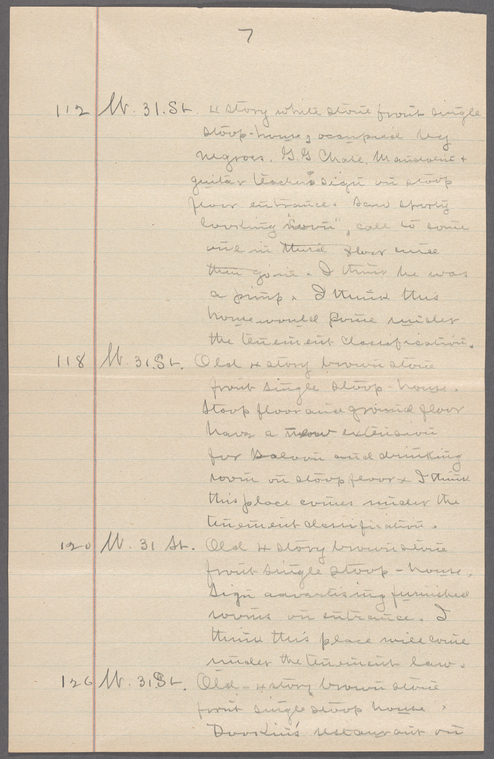 7
112 W. 31. St. 4 story white stone front single
stoop-house, occupied by
negroes. G.G. Mandolin +
guitar teacher's sign on stoop
floor entrance. Saw sporty
looking "coon", call to some
one in third floor and
then gone. I think he was
a pimp. I think this
house would come under
the tenement classification.
118 W. 31. St. Old 4 story brown stone
front single stoop-house.
Stoop floor and ground floor
have a new extension
for saloon and drinking
room on stoop floor & I think
this place comes under the
tenement classification.
120 W. 31 St. Old 4 story brown stone
front single stoop-house.
Sign advertising furnished
rooms on entrance. I
think this place will come
under the tenement law.
126 W. 31 St. Old-4 story brown stone
front single stoop house.
restaurant on